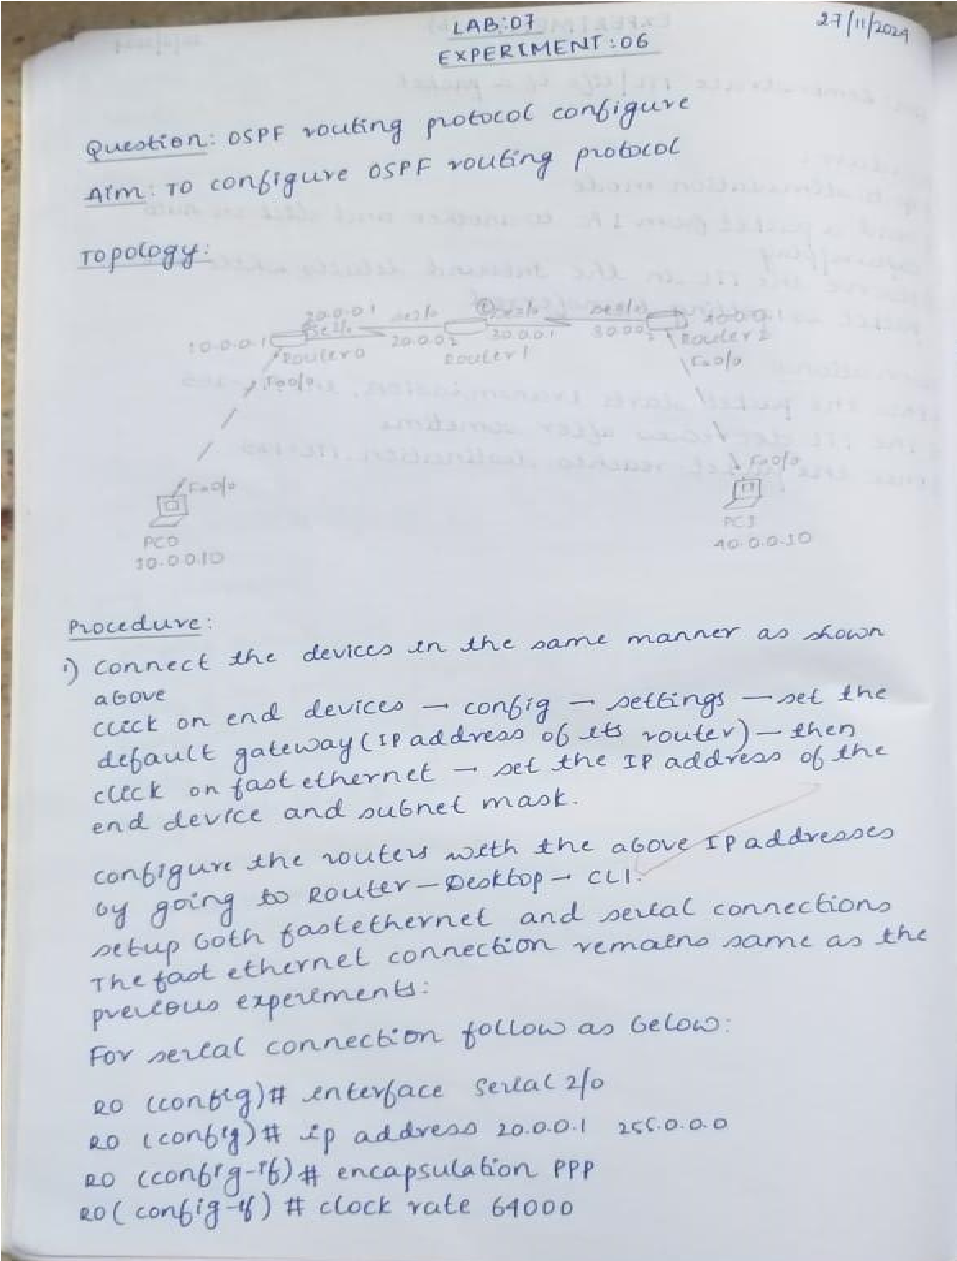 LAB:07
27/11/2024
EXPERIMENT:06
Question: OSPF routing protocol configure
Aim: To configure OSPF routing protocol
Topology:
20.0.0.1 se2/0 se3/0
10.0.0.1 se2/0 20.0.0.2 30.0.0.1 Router2
Router0 Router1 Fa0/0
Fa0/0
Fa0/0 Fa0/0
PC0 PC1
10.0.0.10 40.0.0.10
Procedure:
i) connect the devices in the same manner as shown
above
click on end devices – config – settings – set the
default gateway (IP address of its router) – then
click on fast ethernet – set the IP address of the
end device and subnet mask.
configure the routers with the above IP addresses
by going to Router – Desktop – CLI.
setup both fastethernet and serial connections
The fast ethernet connection remains same as the
previous experiments:
For serial connection follow as below:
R0 (config)# interface serial 2/0
R0 (config)# ip address 20.0.0.1 255.0.0.0
R0 (config-if)# encapsulation PPP
R0 (config-if) # clock rate 64000